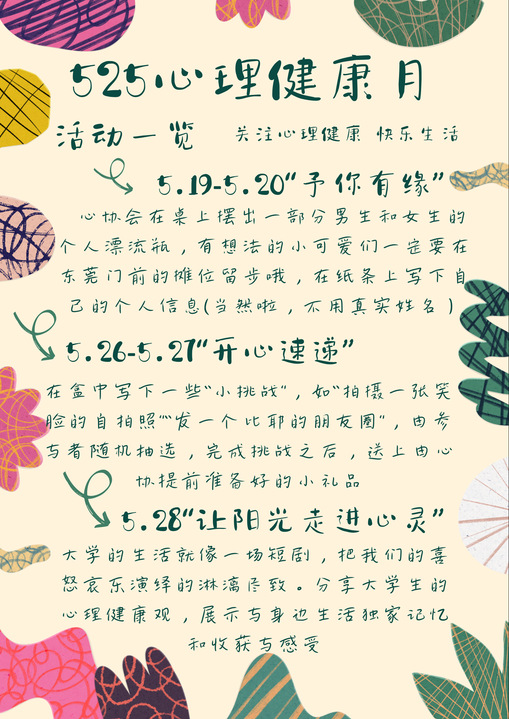 525心理健康月
活动一览 关注心理健康 快乐生活
5.19-5.20“予你有缘”
心协会在桌上摆出一部分男生和女生的
个人漂流瓶，有想法的小可爱们一定要在
东莞门前的摊位留步哦，在纸条上写下自
己的个人信息(当然啦，不用真实姓名)
5.26-5.27“开心速递”
在盒中写下一些“小挑战”，如“拍摄一张笑
脸的自拍照”“发一个比耶的朋友圈”，由参
与者随机抽选，完成挑战之后，送上由心
协提前准备好的小礼品
5.28“让阳光走进心灵”
大学的生活就像一场短剧，把我们的喜
怒哀乐演绎的淋漓尽致。分享大学生的
心理健康观，展示与身边生活独家记忆
和收获与感受